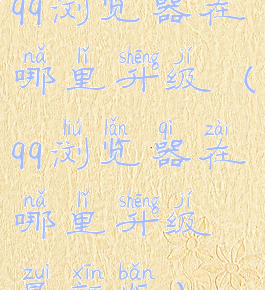 qq浏览器在
nǎ lǐ shēng jí
哪里升级(
liú lǎn qì zài
qq浏览器在
nǎ lǐ shēng jí
哪里升级
zuì xīn bǎn